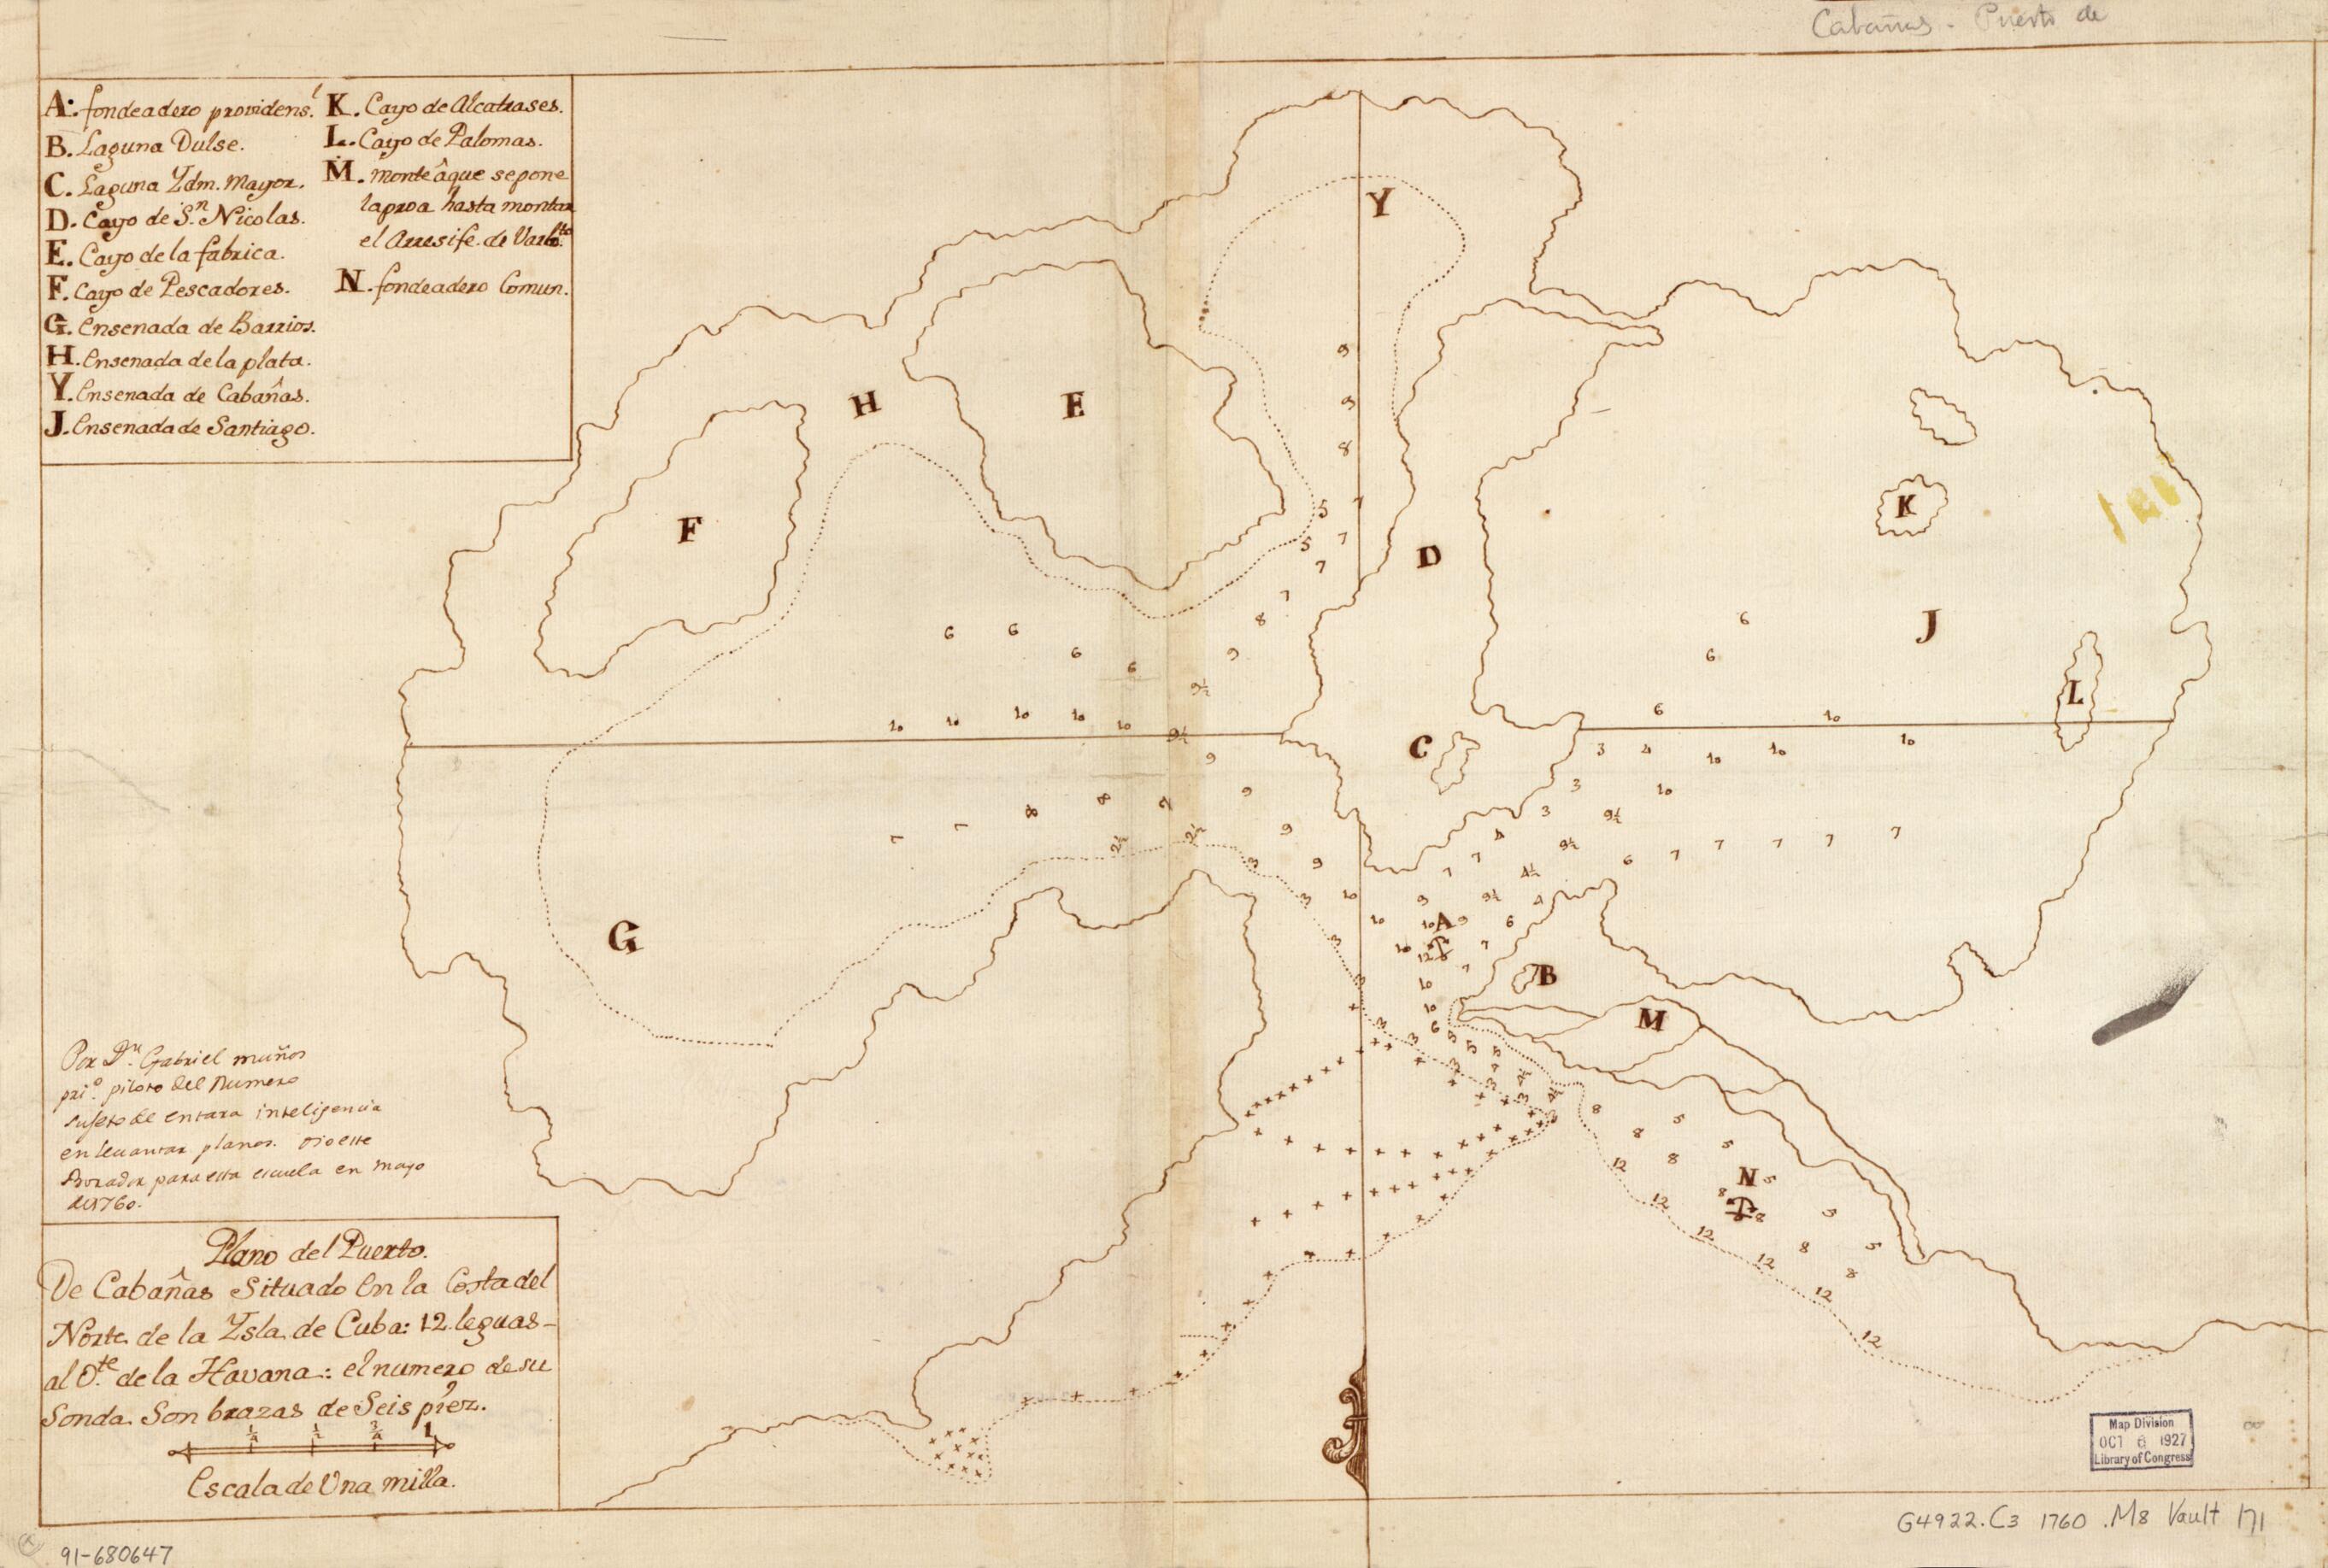 Cabañas - Puerto de
A. fondeadero providens.l
B. Laguna Dulse.
C. Laguna Ydm. Mayor.
D. Cayo de S.n Nicolas.
E. Cayo de la fabrica.
F. Cayo de Pescadores.
G. Ensenada de Barrios.
H. Ensenada de la plata.
Y. Ensenada de Cabañas.
J. Ensenada de Santiago.
K. Cayo de Alcatrases.
L. Cayo de Palomas.
M. monte âque se pone
la proa hasta montar
el Arresife. de
N. fondeadero Comun.
Y
H
E
F
K
D
J
L
C
G
A
B
M
N
Por Dn. Gabriel muños
pri.o piloto del Numero
sujeto de entara inteligencia
en levantar planos. Dio este
Borador para esta escuela en mayo
de 1760.
Plano del Puerto.
De Cabañas Situado En la Costa del
Norte de la Ysla de Cuba: 12 leguas-
al O.te de la Havana: el numero de su
Sonda Son brazas de Seis piez.
1/4 1/2 3/4 1
Escala de Una milla.
Map Division
OCT 6 1927
Library of Congress
G4922.C3 1760 .M8 Vault
91-680647